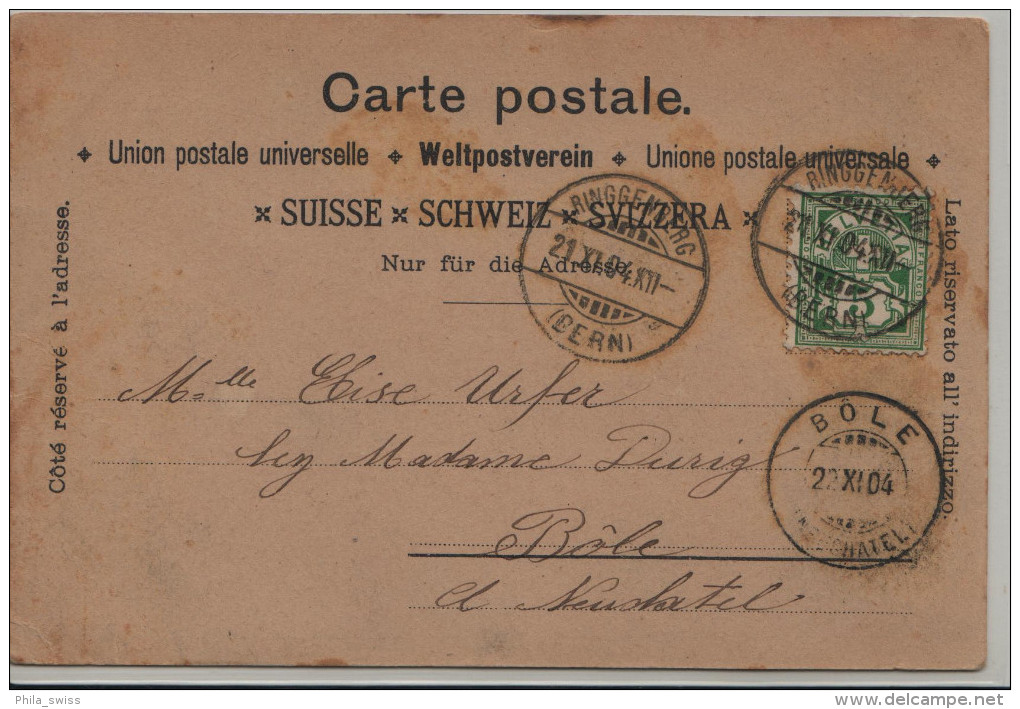 Carte postale.
Union postale universelle Weltpostverein Unione postale universale
SUISSE SCHWEIZ SVIZZERA
Nur für die Adresse.
Côté réservé à l'adresse.
Lato riservato all' indirizzo.
RINGGENBERG
21.XI.04.XII-
(BERN)
RINGGENBERG
21.XI.04.XII-
(BERN)
HELVETIA
FRANCO
5
Mlle Elise Urfer
bey Madame Durig
Bôle
ct Neuchatel
BÔLE
22.XI.04
(NEUCHATEL)
Phila_swiss
delcampe.net